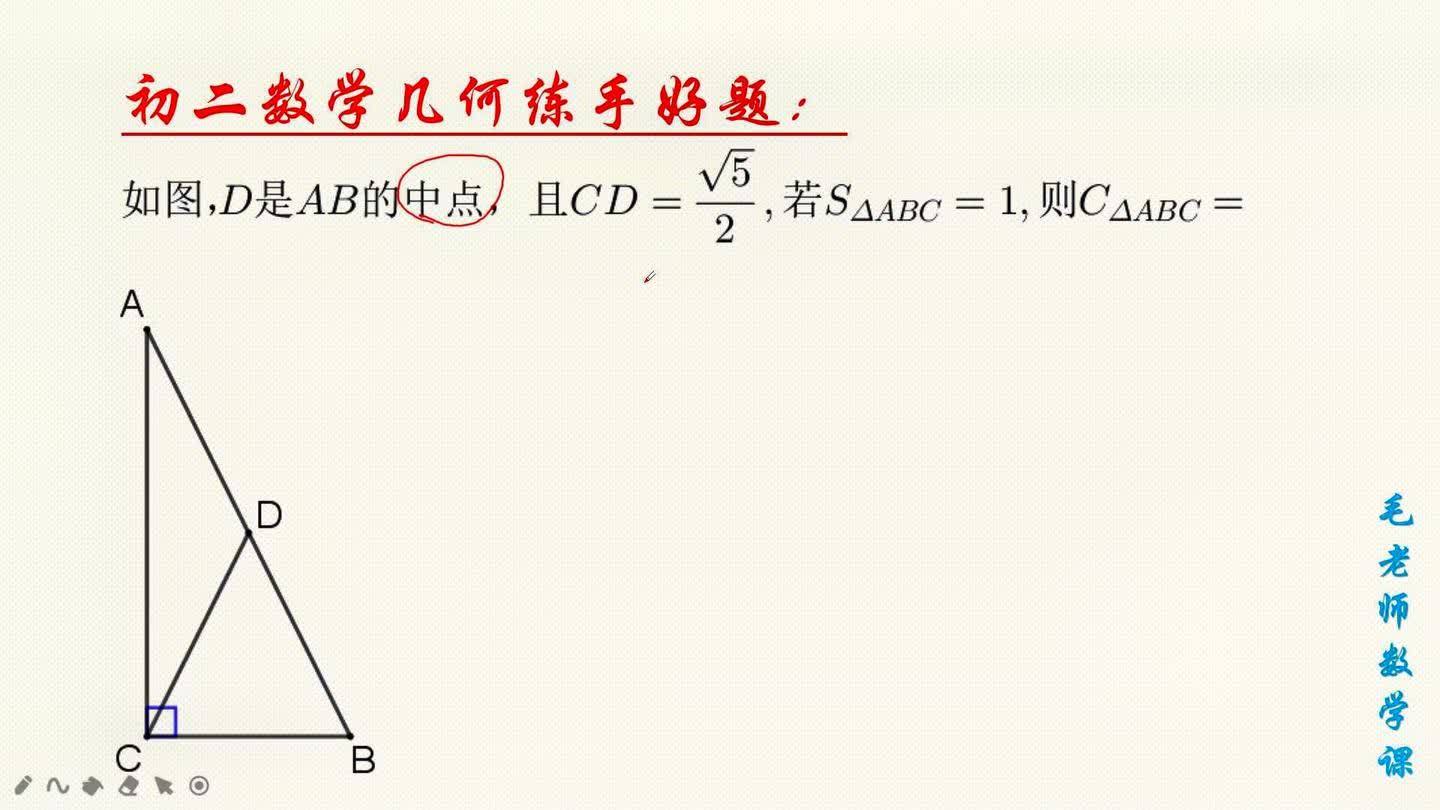 初二数学几何练手好题：
如图，D是AB的中点，且CD = \frac{\sqrt{5}}{2}，若S_{ΔABC} = 1，则C_{ΔABC} =
A
D
C
B
毛老师数学课